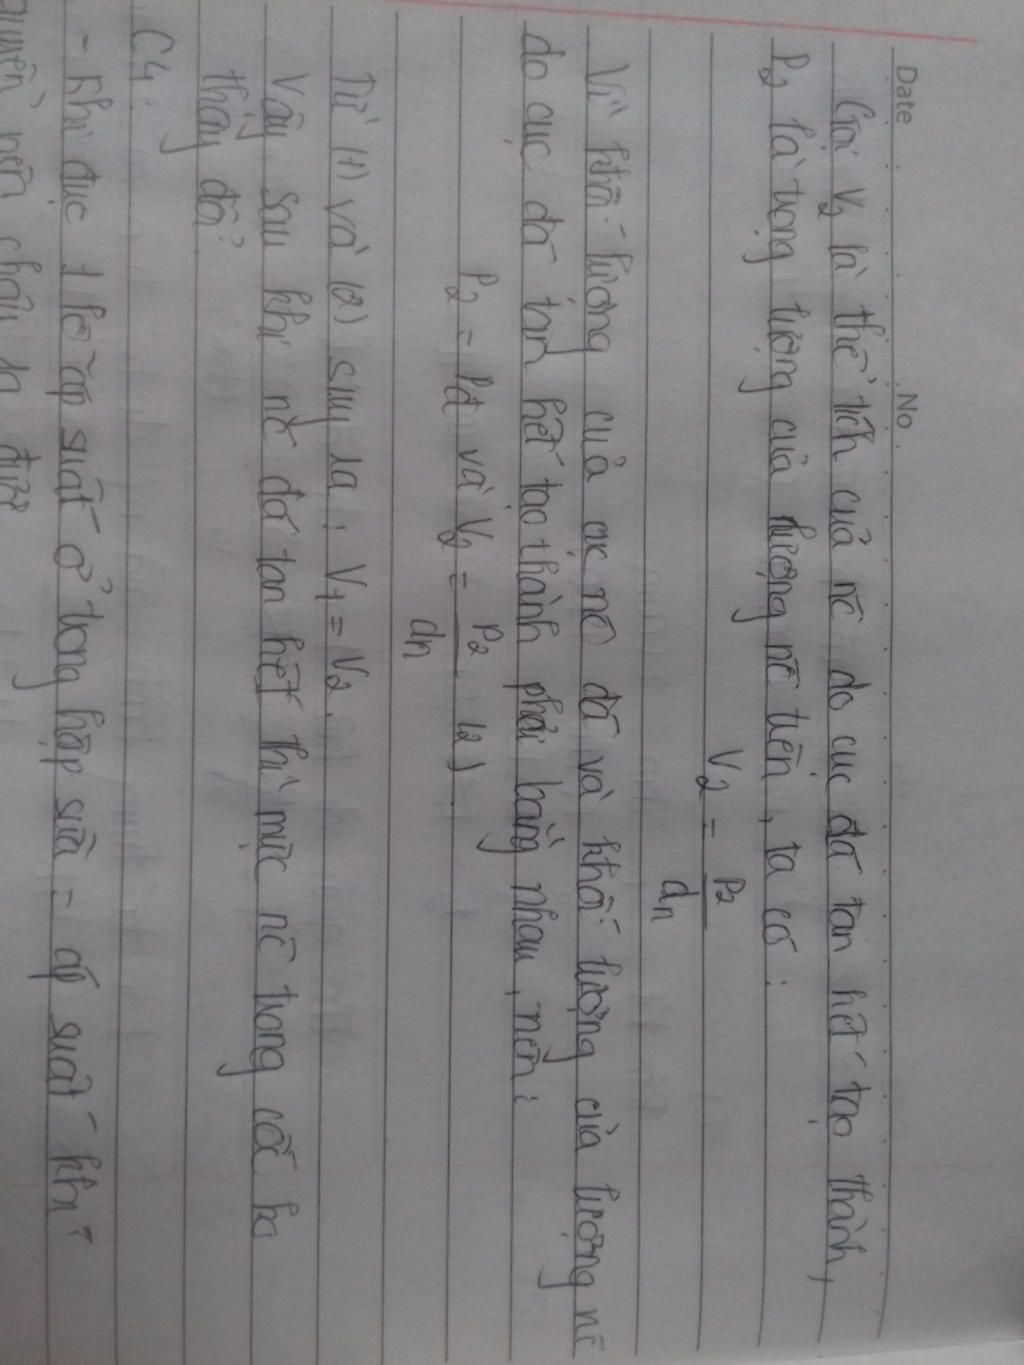 Date No
Gọi V2 là thể tích của nc do cục đá tan hết tạo thành,
P2 là trọng lượng của lượng nc trên, ta có:
V2 = P2
dn
Vì khối lượng của cục nc đá và khối lượng của lượng nc
do cục đá tan hết tạo thành phải bằng nhau, nên:
P2 = Pđ và V2 = P2 (2)
dn
Từ (1) và (2) suy ra: V1 = V2.
Vậy sau khi nc đá tan hết thì mực nc trong cốc ko
thay đổi
C4:
- Khi đục 1 lỗ áp suất ở trong hộp sữa = áp suất khí
quyển nên chảy ra được